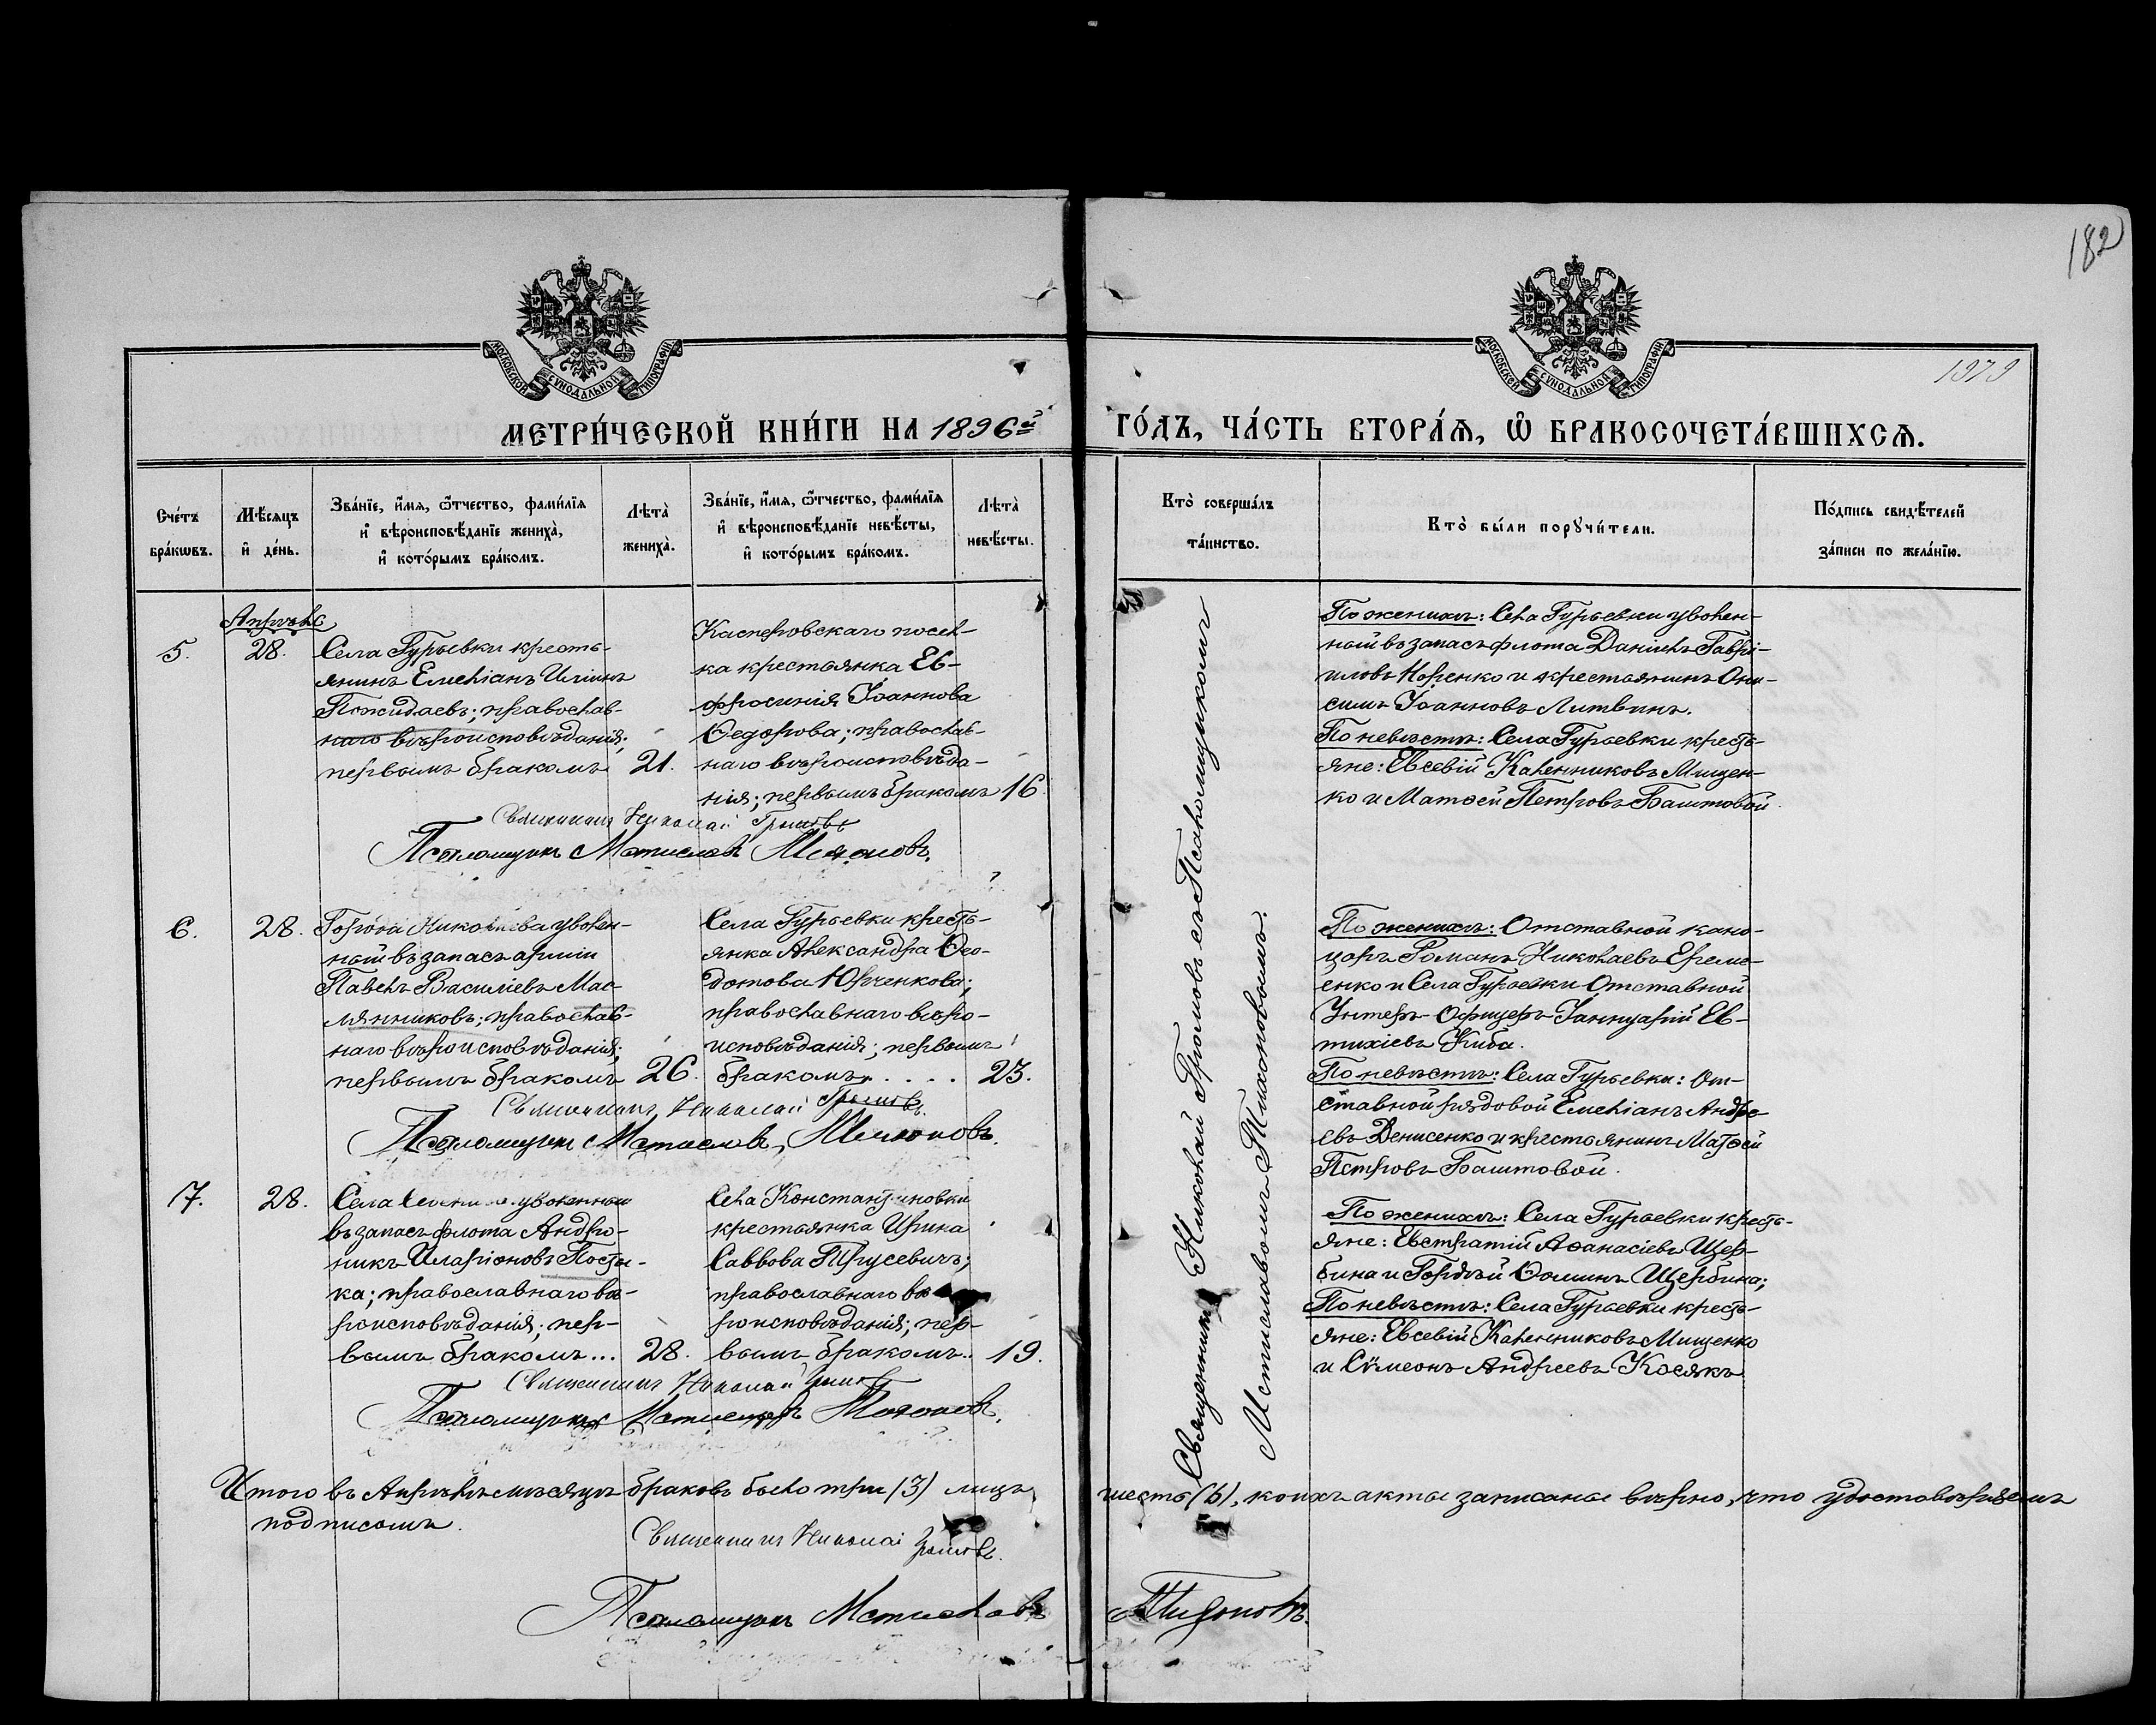 182
1979
МОСКОВСКОЙ СѴНОДАЛЬНОЙ ТИПОГРАФІИ
МОСКОВСКОЙ СѴНОДАЛЬНОЙ ТИПОГРАФІИ
МЕТРИ́ЧЕСКОЙ КНИ́ГИ НА 1896й ГО́ДЪ, ЧА́СТЬ ВТОРА́Я, Ѿ БРАКОСОЧЕТА́ВШИХСЯ.
Сче́тъ бра́кѡвъ.
Мѣ́сяцъ и҆ де́нь.
Зва́нїе, и҆́мя, ѻ҆́тчество, фами́лїя и҆ вѣроисповѣ́данїе жениха̀, и҆ кото́рымъ бра́комъ.
Лѣ́та̀ жениха̀.
Зва́нїе, и҆́мя, ѻ҆́тчество, фами́лїя и҆ вѣроисповѣ́данїе невѣ́сты, и҆ кото́рымъ бра́комъ.
Лѣ́та̀ невѣ́сты.
Кто̀ соверша́лъ та́инство.
Кто̀ бы́ли порꙋчи́тели.
По́дпись свидѣ́телей за́писи по жела́нїю.
5.
Апрѣль
28.
Села Гурьевки кресть-
янинъ Емеліанъ Иліинъ
Пожидаевъ; православ-
наго вѣроисповѣданія;
первымъ бракомъ
21.
Касперовскаго посел-
ка крестьянка Ев-
фросинія Іоаннова
Ѳедорова; православ-
наго вѣроисповѣда-
нія; первымъ бракомъ
16
Священникъ Николай Громовъ
Псаломщикъ Мстиславъ Тихоновъ.
По женихѣ: Села Гурьевки уволен-
ный въ запасъ флота Даніилъ Гаврі-
иловъ Коренко и крестьянинъ Они-
симъ Іоанновъ Литвинъ.
По невѣстѣ: Села Гурьевки кресть-
яне: Евсевій Каленниковъ Мищен-
ко и Матѳей Петровъ Баштовой.
6.
28.
Города Николаева уволен-
ный въ запасъ арміи
Павелъ Василіевъ Мас-
лянниковъ; православ-
наго вѣроисповѣданія;
первымъ бракомъ
26.
Села Гурьевки кресть-
янка Александра Ѳео-
дотова Юрченкова;
православнаго вѣро-
исповѣданія; первымъ
бракомъ. . . . .
23.
Священникъ Николай Громовъ.
Псаломщикъ Мстиславъ Тихоновъ.
По женихѣ: Отставной кано-
ниръ Романъ Николаевъ Ереме-
енко и Села Гурьевки Отставной
Унтеръ-Офицеръ Іаннуарій Ев-
тихіевъ Киба.
По невѣстѣ: Села Гурьевки: От-
ставной рядовой Емеліанъ Андре-
евъ Денисенко и крестьянинъ Матѳей
Петровъ Баштовой.
7.
28.
Села уволенный
въ запасъ флота Андро-
никъ Иларіоновъ
ка; православнаго вѣ-
роисповѣданія; пер-
вымъ бракомъ...
28.
Села Константиновки
крестьянка Ирина
Саввова Трусевичъ;
православнаго вѣ-
роисповѣданія; пер-
вымъ бракомъ..
19.
Священникъ Николай Громовъ
Псаломщикъ Мстиславъ Тихоновъ.
По женихѣ: Села Гурьевки кресть-
яне: Евстратій Аѳанасіевъ Щер-
бина и Гордѣй Ѳоминъ Щербина;
По невѣстѣ: Села Гурьевки кресть-
яне: Евсевій Каленниковъ Мищенко
и Сѵмеонъ Андреевъ Косякъ
Священникъ Николай Громовъ съ Псаломщикомъ
Мстиславомъ Тихоновымъ.
Итого въ Апрѣлѣ мѣсяцѣ браковъ было три (3) лицъ шесть (6), коихъ акты записаны вѣрно, что удостовѣряемъ
подписомъ.
Священникъ Николай Громовъ.
Псаломщикъ Мстиславъ Тихоновъ.